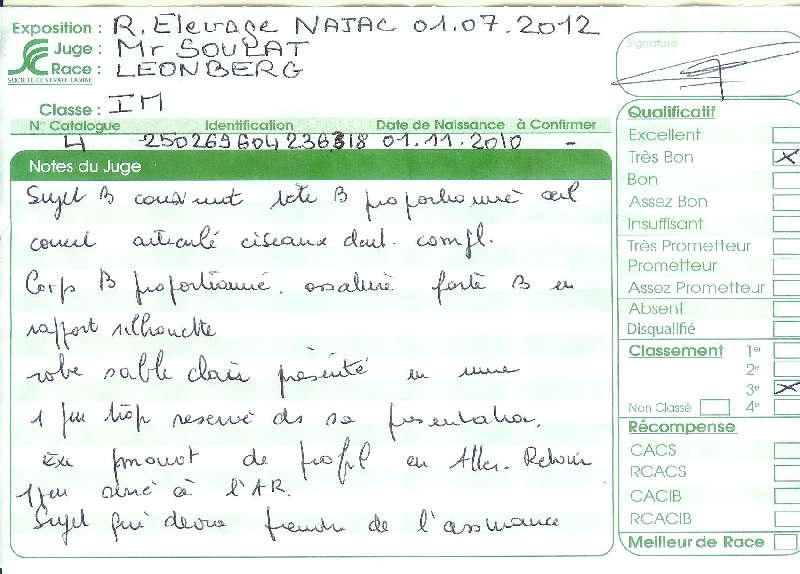 Exposition : R. Elevage NAJAC 01.07.2012
Juge : Mr SOULAT
Race : LEONBERG
SOCIETE CENTRALE CANINE
Classe : IM
N° Catalogue Identification Date de Naissance à Confirmer
4 250269604236318 01.11.2010 -
Notes du Juge
Sujet B construit tête B proportionné œil
articulé ciseaux dent. compl.
Corps B proportionné. ossature forte B en
rapport silhouette
robe sable clair présenté en mue
1 peu trop reservé ds sa présentation.
de profil en Aller. Retour
1 peu serré à l'AR.
Sujet qui devra prendre de l'assurance
Signature :
Qualificatif
Excellent
Très Bon X
Bon
Assez Bon
Insuffisant
Très Prometteur
Prometteur
Assez Prometteur
Absent
Disqualifié
Classement 1er
2e
3e X
Non Classé 4e
Récompense
CACS
RCACS
CACIB
RCACIB
Meilleur de Race